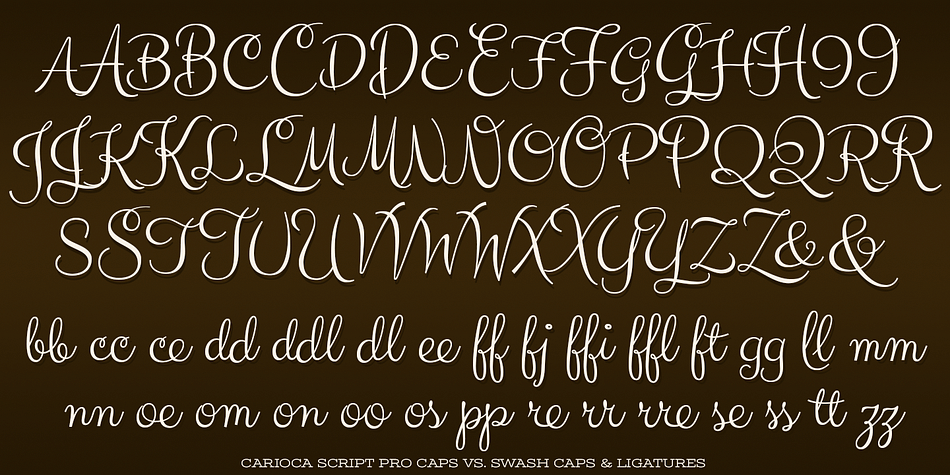 AABBCCDDEEFFGGHHII
JJKKLLMMNNOOPPQQRR
SSTTUUVVWWXXYYZZ&&
bb cc ce dd ddl dl ee ff fj ffi ffl ft gg ll mm
nn oe om on oo os pp re rr rre se ss tt zz
CARIOCA SCRIPT PRO CAPS VS. SWASH CAPS & LIGATURES